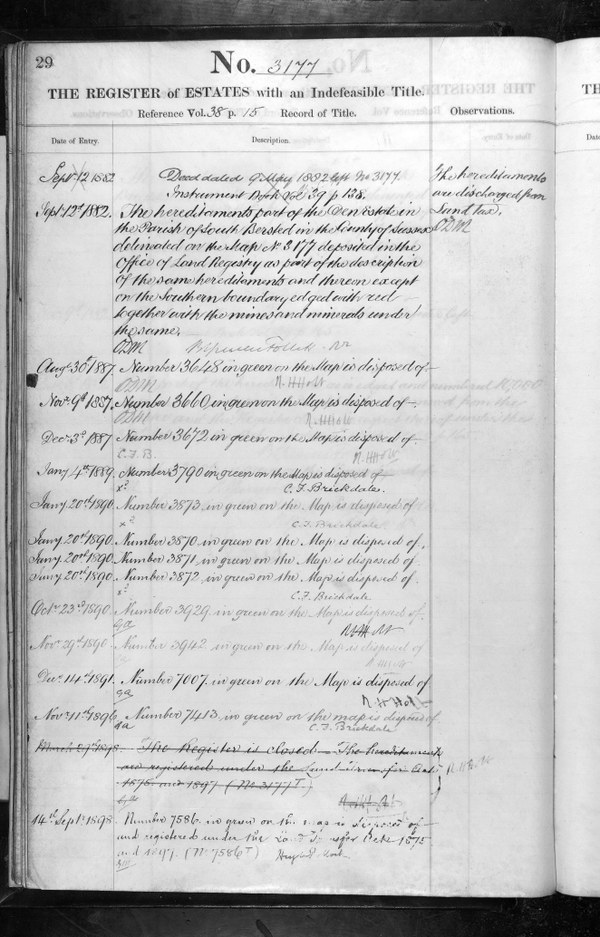 29
No. 3177
THE REGISTER of ESTATES with an Indefeasible Title.
Reference Vol. 38 p. 15 Record of Title.
Observations.
Date of Entry.
Description.
Sept 12 1882
Deed dated 9 May 1882 left No 3177
Instrument Book Vol 39 p 128.
The hereditaments
are discharged from
Land Tax.
Sept 12th 1882.
The hereditaments part of the Den Estate in
the Parish of South Bersted in the County of Sussex
delineated on the Map No 3177 deposited in the
Office of Land Registry as part of the description
of the same hereditaments and thereon except
on the Southern boundary edged with red
together with the mines and minerals under
the same.
Augt 30th 1887. Number 3648 in green on the Map is disposed of
R. H. Holt
Novr 9th 1887. Number 3660 in green on the Map is disposed of
R. H. Holt
Decr 3rd 1887 Number 3672 in green on the Map is disposed of
C.F.B. R. H. Holt
Jany 4th 1889. Number 3790 in green on the Map is disposed of
C. F. Brickdale.
Jany 20th 1890. Number 3873 in green on the Map is disposed of
C. F. Brickdale
Jany 20th 1890. Number 3870 in green on the Map is disposed of.
Jany 20th 1890. Number 3871 in green on the Map is disposed of
Jany 20th 1890. Number 3872 in green on the Map is disposed of
C. F. Brickdale
Octr 23rd 1890. Number 3929 in green on the Map is disposed of
R. H. Holt
Novr 29th 1890. Number 3942 in green on the Map is disposed of
R. H. Holt
Decr 14th 1891. Number 7007 in green on the Map is disposed of
R. H. Holt
Novr 11th 1896. Number 7413 in green on the map is disposed of
C. F. Brickdale
March 29th 1898 The Register is closed The hereditaments
are registered under the Land Transfer Acts
1875 and 1897 (No 3177 T.)
R. H. Holt
R. H. Holt
14th Sept 1898. Number 7586 in green on the map is disposed of
and registered under the Land Transfer Acts 1875
and 1897. (No 7586 T)